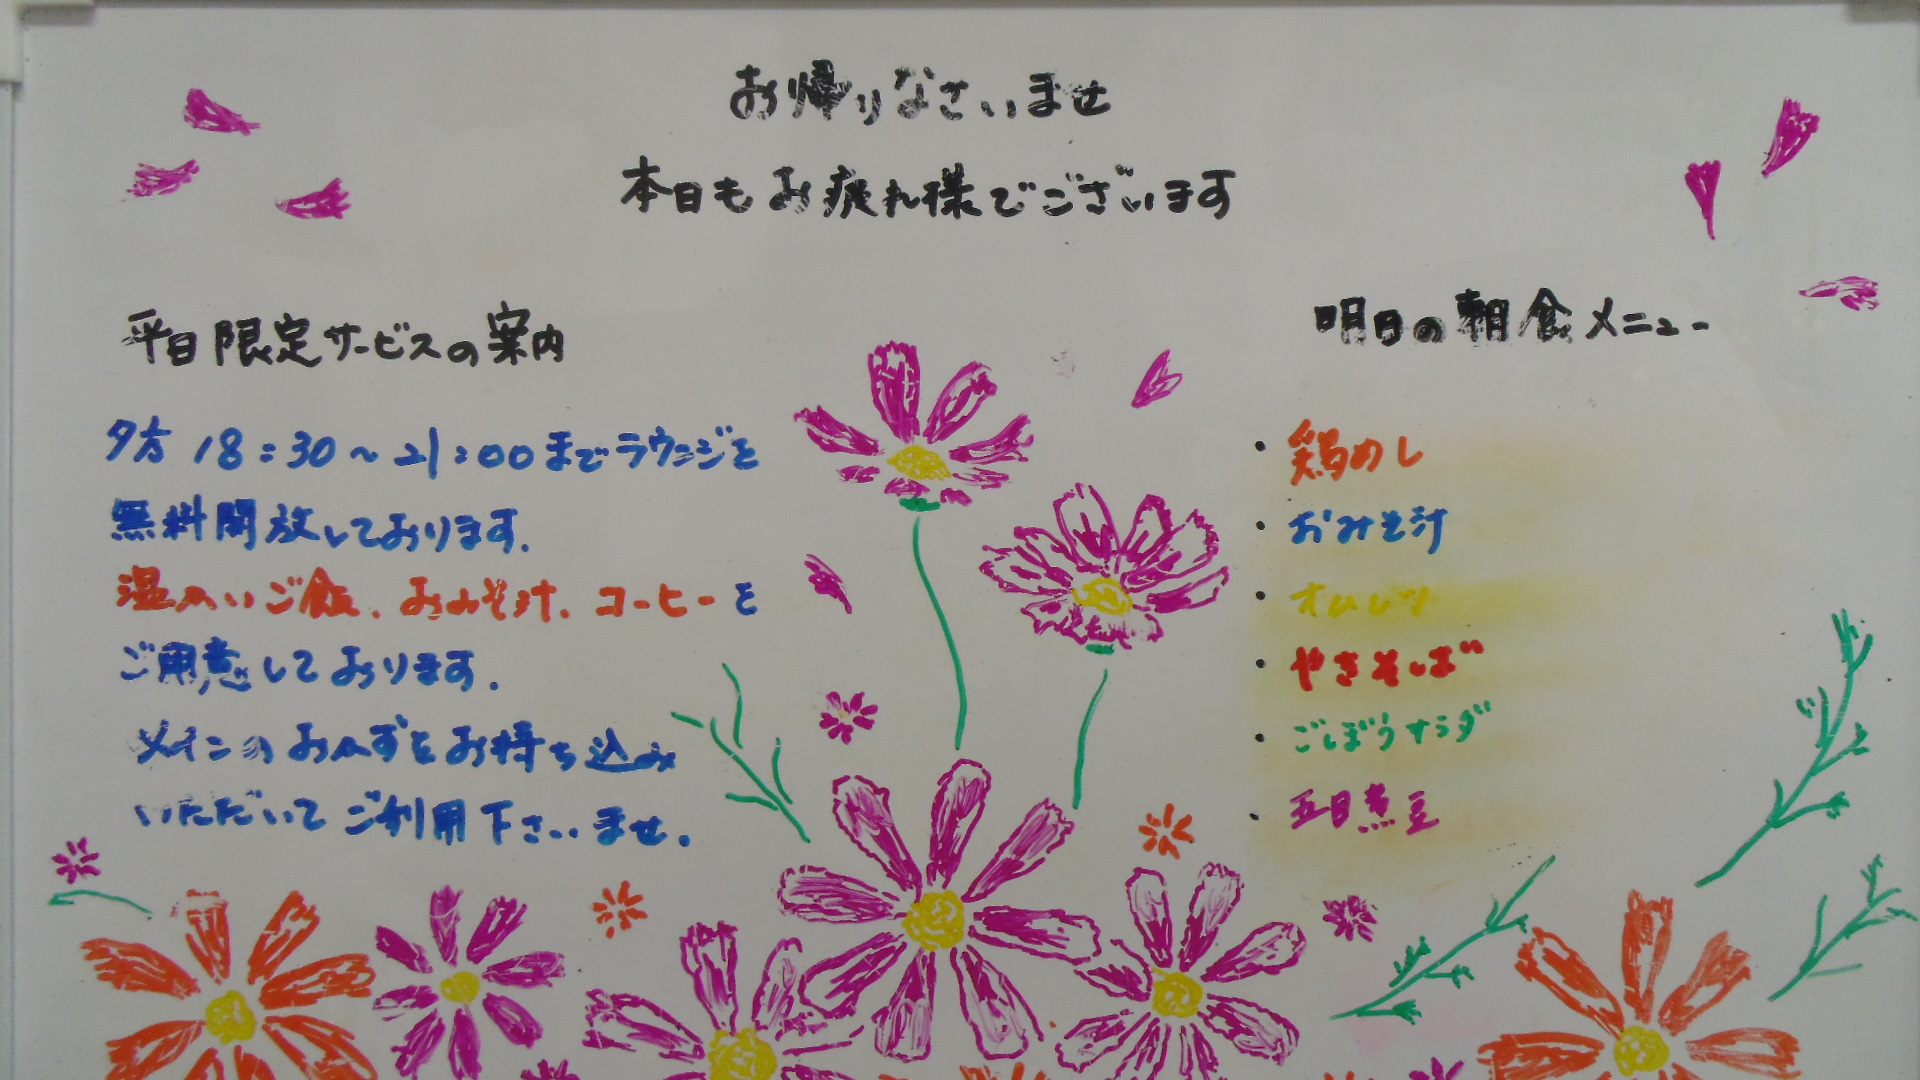 お帰りなさいませ
本日もお疲れ様でございます
平日限定サービスの案内
夕方 18:30～21:00までラウンジを
無料開放しております.
温かいご飯、おみそ汁、コーヒーを
ご用意しております.
メインのおかずをお持ち込み
いただいてご利用下さいませ.
明日の朝食メニュー
・鶏めし
・おみそ汁
・オムレツ
・やきそば
・ごぼうサラダ
・五目煮豆